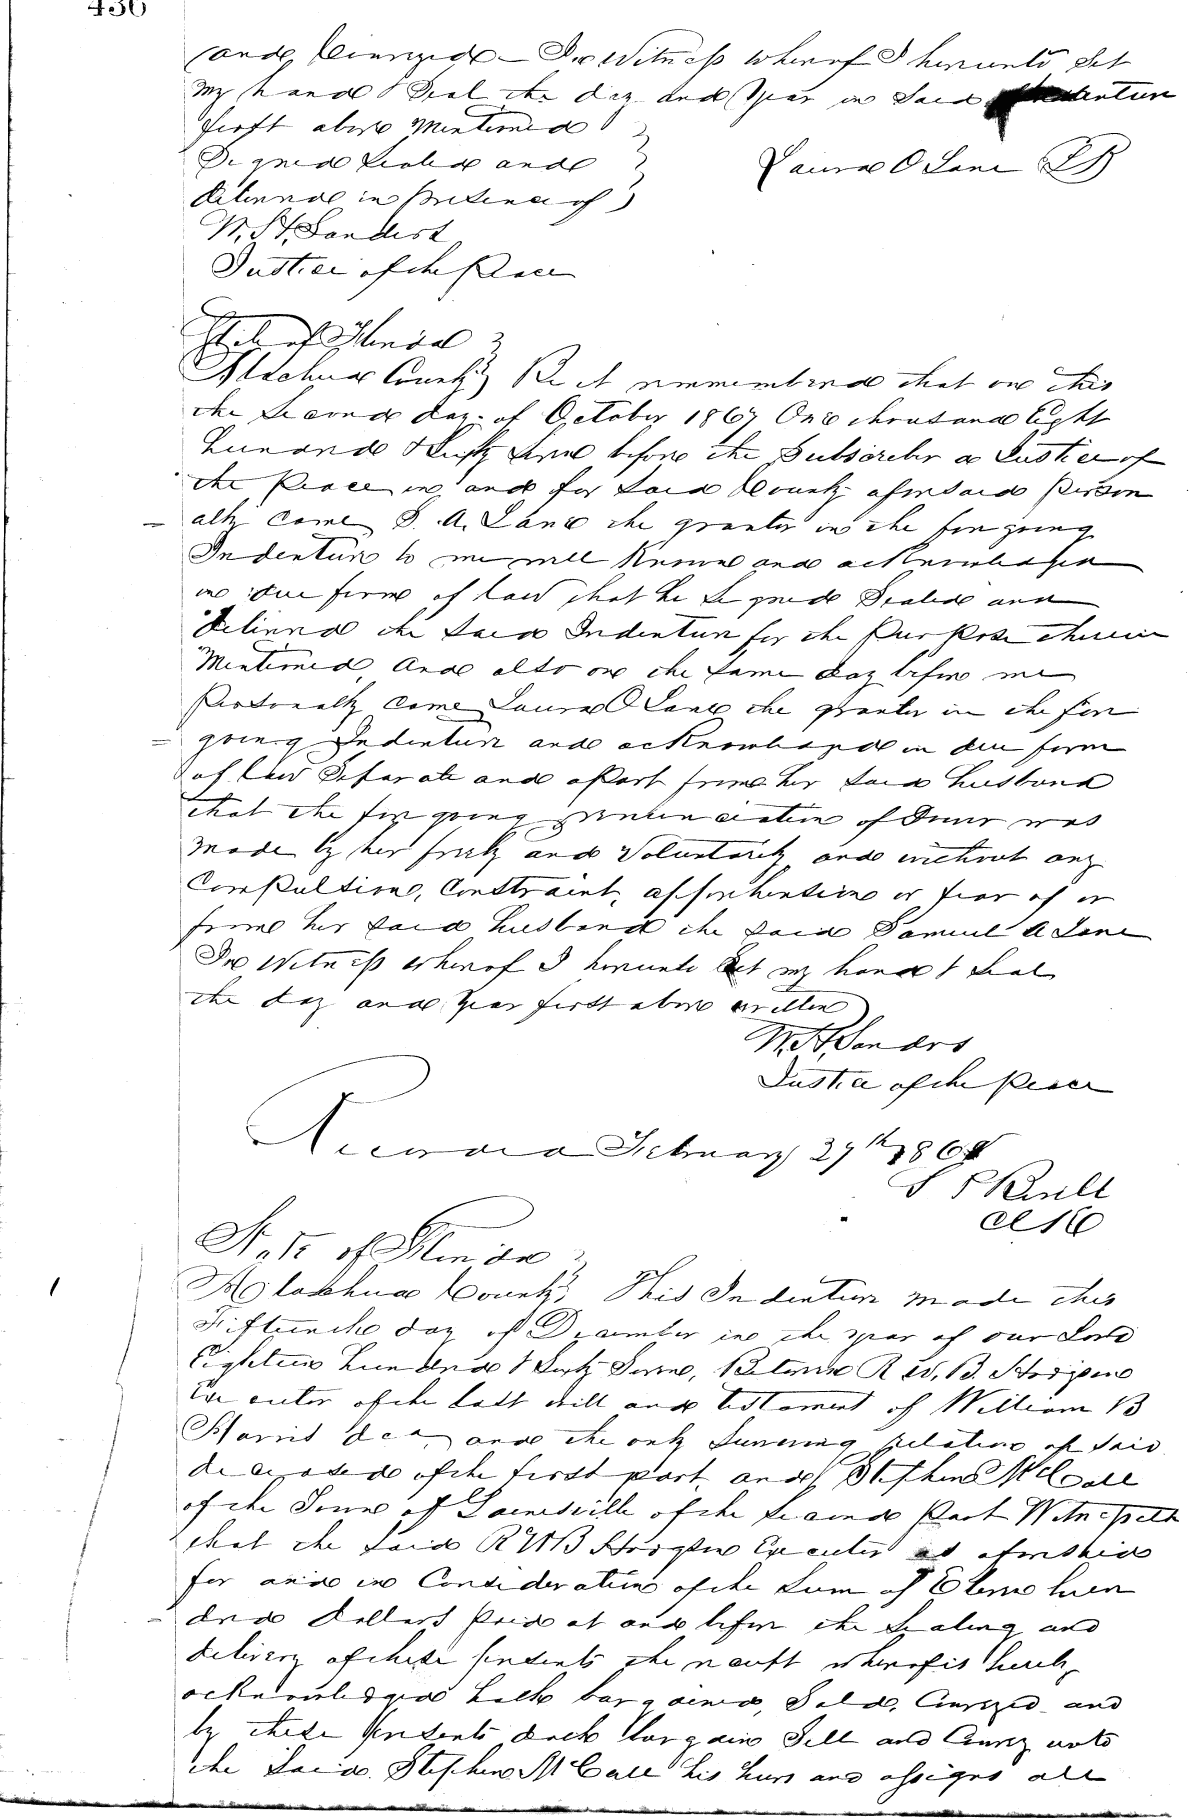 436
and Conveyed – In Witness whereof I hereunto Set
My hand & Seal the day and Year in Said Indenture
first above Mentioned
Signed Sealed and
delivered in presence of
W. H. Sanders
Justice of the Peace
Laura O Lane LS
State of Florida
Alachua County Be it remembered that on this
the Second day of October 1867 One thousand Eight
hundred & Sixty Seven before the Subscriber a Justice of
the Peace in and for Said County aforesaid Person
ally Came S. A. Lane the grantor in the foregoing
Indenture to me well Known and acknowledged
in due form of law that he Signed Sealed and
delivered the Said Indenture for the Purpose therein
Mentioned, And also on the Same day before me
Personally Came Laura O Lane the grantor in the fore
going Indenture and acknowledged in due form
of law Separate and apart from her Said husband
that the foregoing renunciation of Dower was
made by her freely and Voluntarily and without any
Compulsion, Constraint, apprehension or fear of or
from her Said husband the Said Samuel A Lane
In Witness whereof I hereunto Set my hand & Seal
the day and Year first above written
W. H. Sanders
Justice of the Peace
Recorded February 27th 1868
S
State of Florida
Alachua County This Indenture made this
Fifteenth day of December in the year of our Lord
Eighteen hundred & Sixty Seven, Between R W. B. Hodgson
Executor of the last will and testament of William B
Harris decd, and the only Surviving relation of Said
deceased of the first part, and Stephen McCall
of the Town of Gainesville of the Second Part Witnesseth
that the Said R W B Hodgson Executor as aforesaid
for and in Consideration of the Sum of Eleven hun
dred dollars Paid at and before the Sealing and
delivery of these presents the receipt whereof is hereby
acknowledged hath bargained, Sold, Conveyed and
by these Presents doth bargain Sell and Convey unto
the Said Stephen McCall his heirs and assigns all